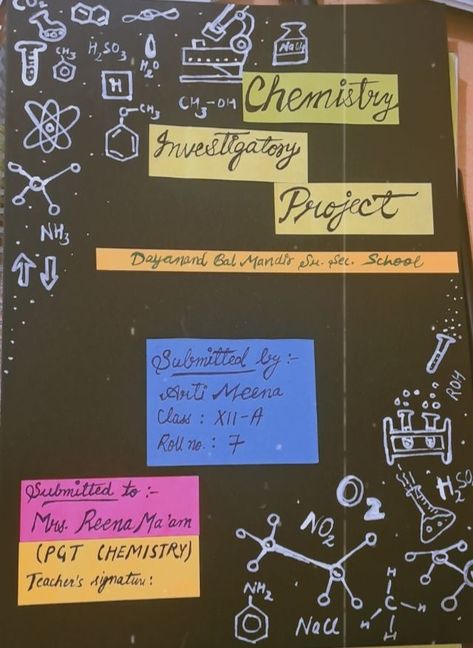 CO₂
CH₃
H₂SO₃
H₂O
NaCl
H
CH₃-OH
CH₃
Chemistry
Investigatory
Project
NH₃
Dayanand Bal Mandir Sr. Sec. School
Submitted by :-
Arti Meena
Class : XII-A
Roll no. : 7
ROH
Submitted to :-
Mrs. Reena Ma'am
(PGT CHEMISTRY)
Teacher's signature:
H₂SO
O₂
NO₂
NH₂
NaCl
H
H C H
H